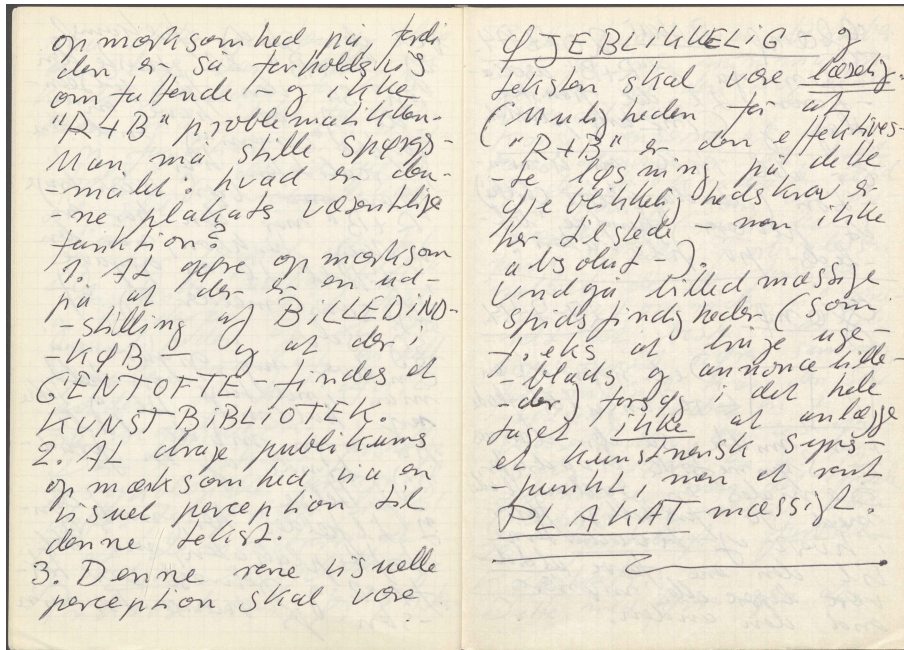 opmærksomhed på fordi
den er så forholdsvis
omfattende – og ikke
"R+B" problematikken –
Man må stille spørgs-
-målet: hvad er den-
-ne plakats væsentlige
funktion?
1. At gøre opmærksom
på at der er en ud-
-stilling af BILLEDIND-
-KØB – og at der i
GENTOFTE – findes et
KUNSTBIBLIOTEK.
2. At drage publikums
opmærksomhed via en
visuel perception til
denne tekst.
3. Denne rene visuelle
perception skal være
ØJEBLIKKELIG – og
teksten skal være læselig.
(Muligheden for at
"R+B" er den effektives-
-te løsning på dette
øjeblikkelighedskrav er
her tilstede – men ikke
absolut –).
Undgå billedmæssige
spidsfindigheder (som
f.eks at bruge uge-
-blads og annonce bille-
-der) forsøg i det hele
taget ikke at anlægge
et kunstnerisk syns-
-punkt, men et rent
PLAKATmæssigt.